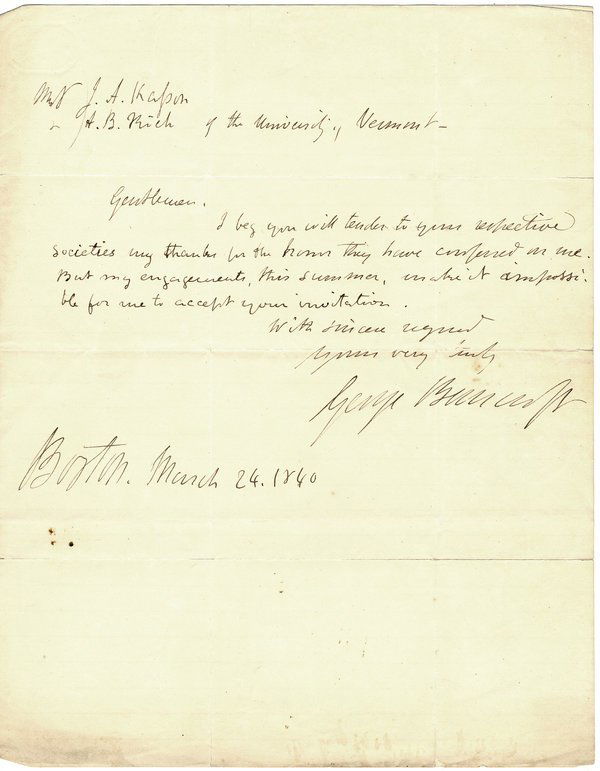 J. A. Kasson
A. B. Rich of the University of Vermont –
Gentlemen.
I beg you will tender to your respective
societies my thanks for the honor they have conferred on me.
But my engagements, this summer, make it impossi-
ble for me to accept your invitation.
With sincere regard
yours very truly
George Bancroft
Boston. March 24. 1840